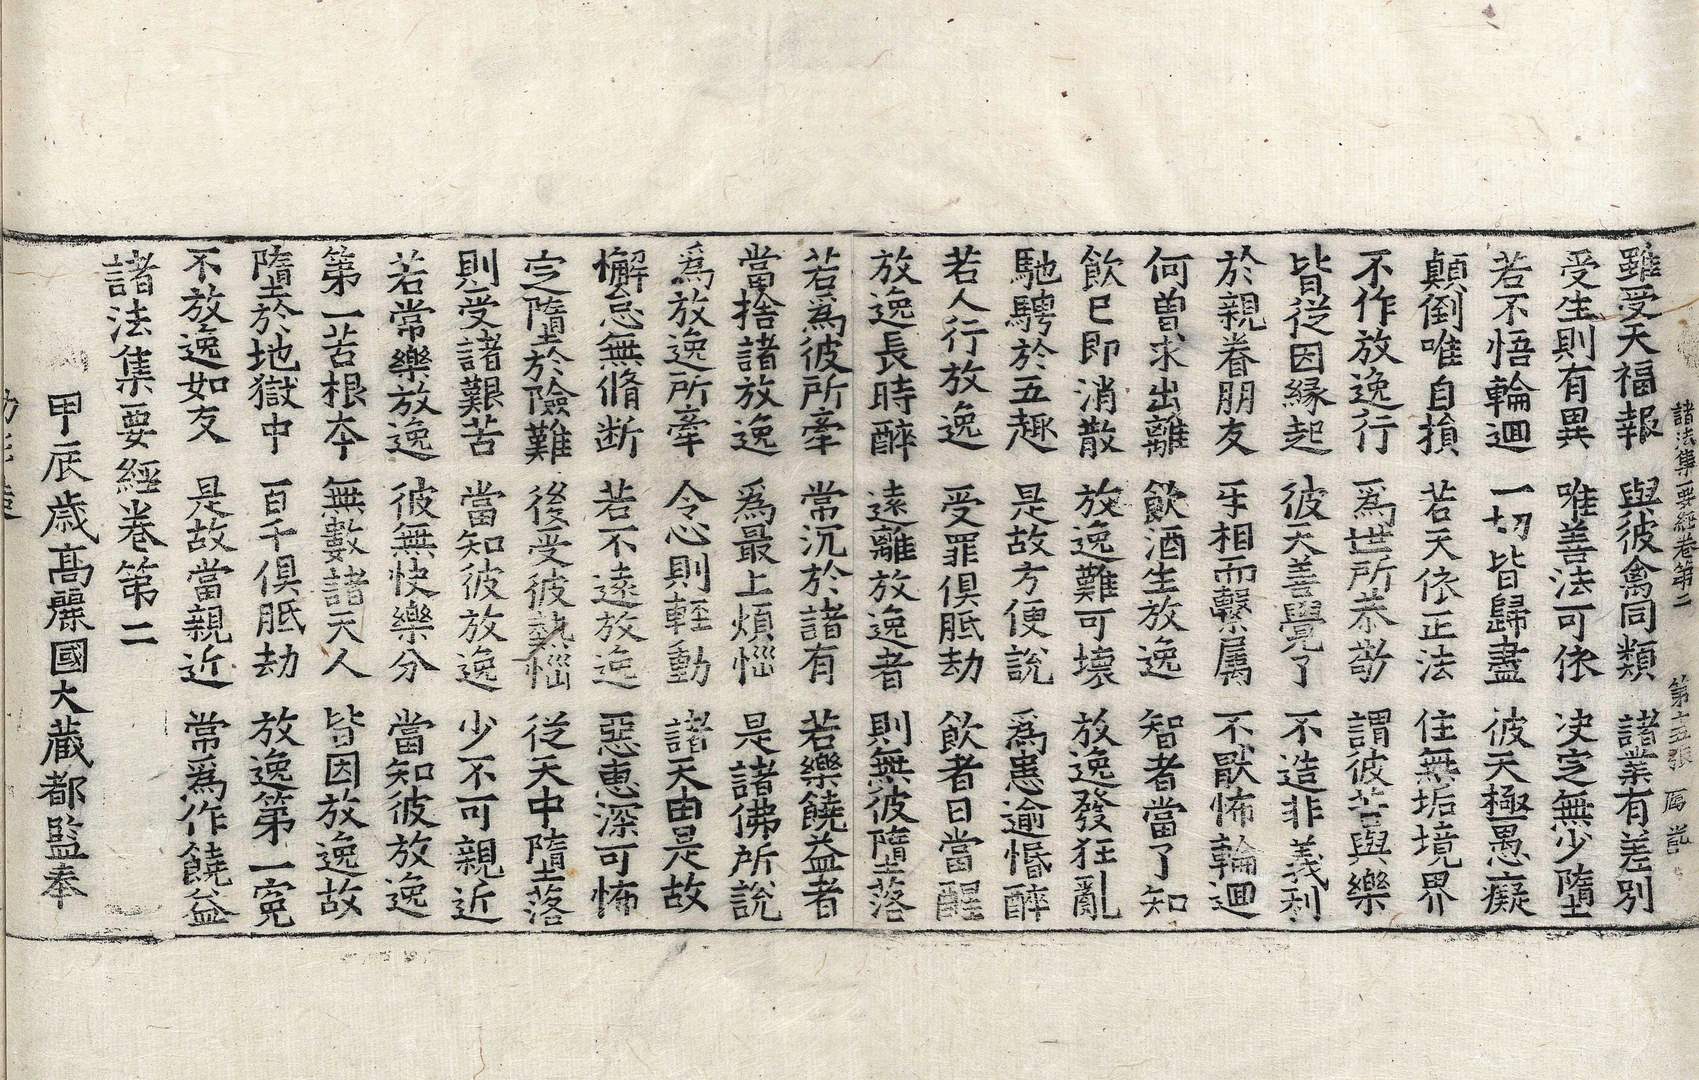 諸法集要經卷第二 第十五張 馮
雖受天福報 與彼禽同類 諸業有差別
受生則有異 唯善法可依 决定無少墮
若不悟輪迴 一切皆歸盡 彼天極愚癡
顛倒唯自損 若天依正法 住無垢境界
不作放逸行 爲世所恭敬 謂彼苦與樂
皆從因緣起 彼天善覺了 不造非義利
於親眷朋友 牙相而繫属 不猒怖輪迴
何曽求出離 飲酒生放逸 智者當了知
飲已即消散 放逸難可壞 放逸發狂亂
馳騁於五趣 是故方便說 爲患逾惛醉
若人行放逸 受罪俱胝劫 飲者日當醒
放逸長時醉 遠離放逸者 則無彼墮落
若爲彼所牽 常沉於諸有 若樂饒益者
當捨諸放逸 爲最上煩惱 是諸佛所說
爲放逸所牽 令心則輕動 諸天由是故
懈怠無脩断 若不遠放逸 惡恵深可怖
定墮於險難 後受彼熱惱 從天中墮落
則受諸艱苦 當知彼放逸 少不可親近
若常樂放逸 彼無快樂分 當知彼放逸
第一苦根本 無數諸天人 皆因放逸故
墮於地獄中 百千俱胝劫 放逸第一寃
不放逸如友 是故當親近 常爲作饒益
諸法集要經卷第二
甲辰歲高麗國大藏都監奉